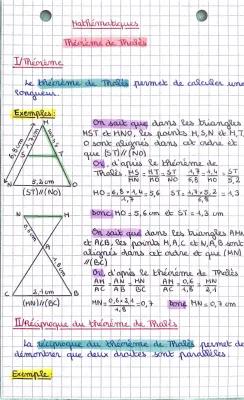 Mathématiques
Théorème de Thalès
I/Théorème
Le théorème de Thalès permet de calculer une longueur.
Exemples:
On sait que dans les triangles
MST et HNO, les points M,S,N et M,T,
O sont alignés dans cet ordre et
que (ST)//(NO)
6,8cm
1,7cm
5,2cm
N
O
S
(ST)//(NO)
Or, d'après le théorème de
Thalès MS/HN = HT/HO = ST/NO 1,7/6,8 = 1,4/HO = ST/5,2
HO = 6,8×1,4/1,7 = 5,6 ST = 1,7×5,2/6,8 = 1,3
donc HO = 5,6cm et ST = 1,3 cm
N
M
0,6cm
A
1,8cm
C
2,1cm
B
(MN)//(BC)
On sait que dans les triangles AMN
et ACB, les points M,A,C et N,A,B sont
alignés dans cet ordre et que (MN)
//(BC)
Or, d'après le théorème de Thalès
AM/AC = AN/AB = MN/BC AM/AC = 0,6/1,8 = MN/2,1
MN = 0,6×2,1/1,8 = 0,7 donc MN = 0,7 cm
II/Réciproque du théorème de Thalès
La réciproque du théorème de Thalès permet de
démontrer que deux droites sont parallèles
Exemple: